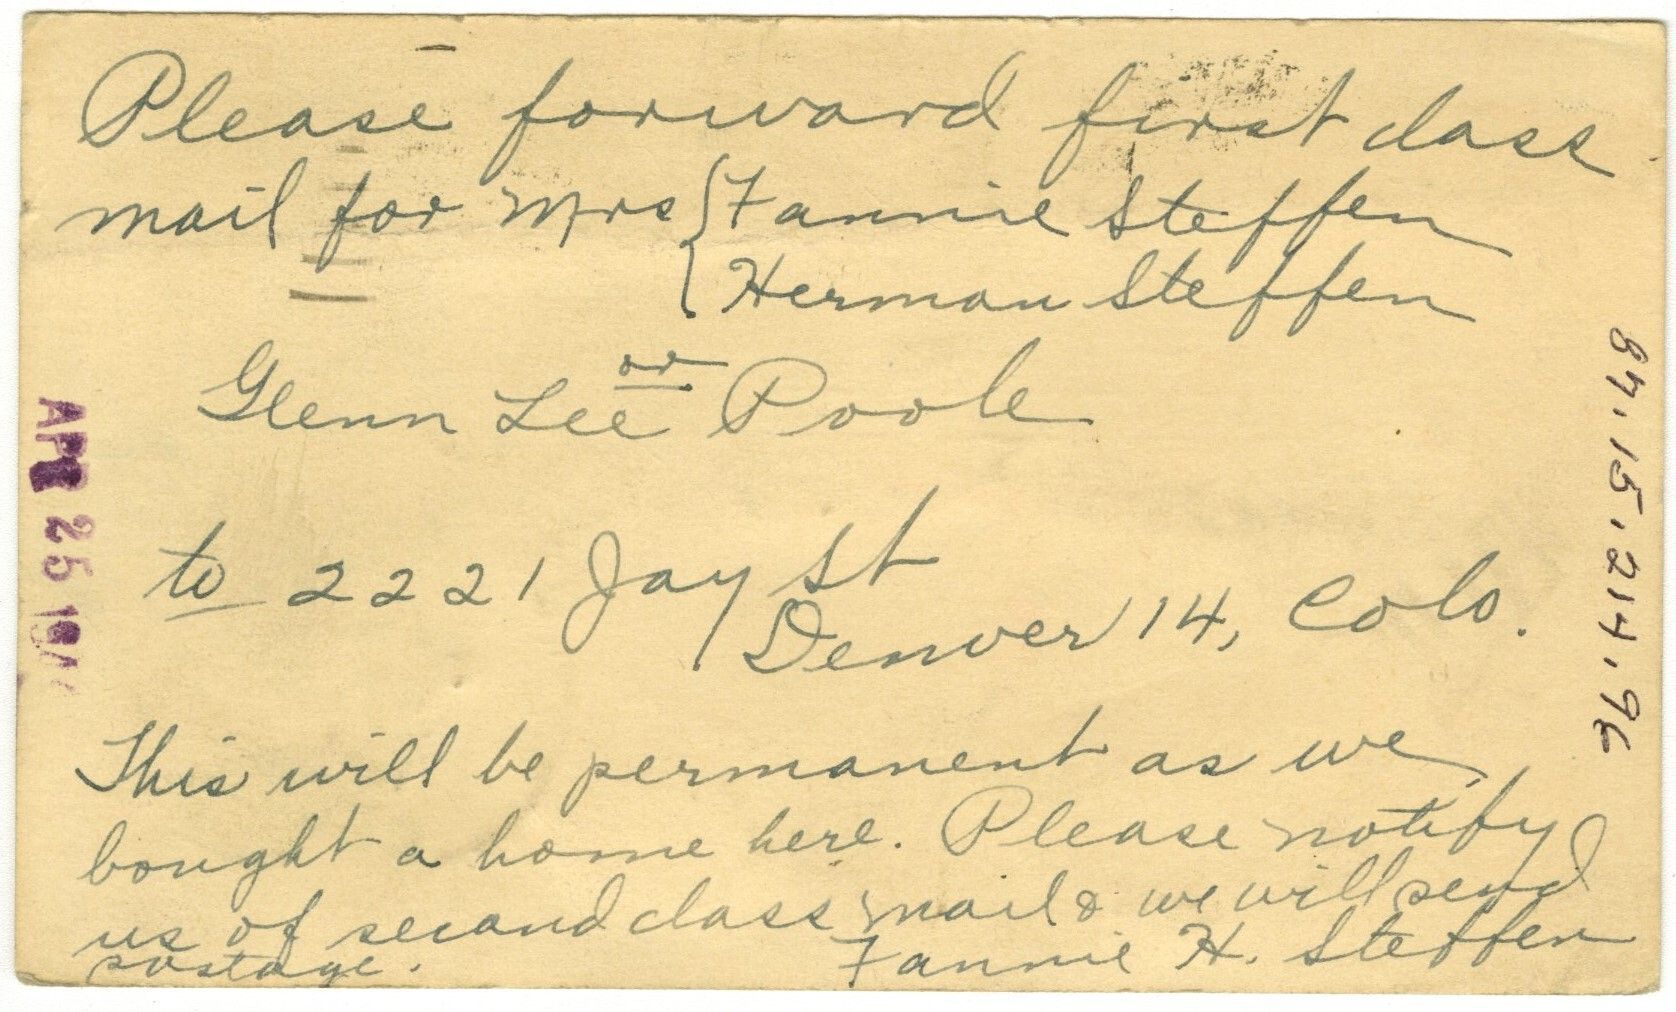 Please forward first class
mail for Mrs { Fannie Steffen
Herman Steffen
or
Glenn Lee Poole
to 2221 Jay St
Denver 14, Colo.
This will be permanent as we
bought a home here. Please notify
us of second class mail & we will send
postage.
Fannie H. Steffen
APR 25
87.15.214.96